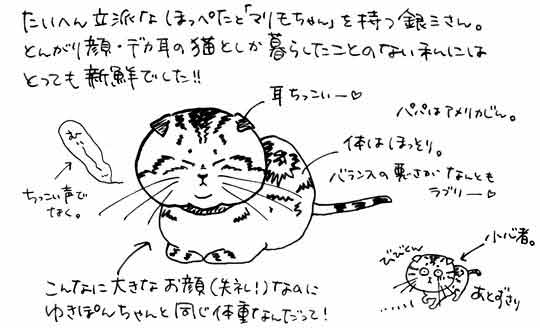 たいへん立派なほっぺたと「マリモちゃん」を持つ銀三さん。
とんがり顔・デカ耳の猫としか暮らしたことのない私には
とっても新鮮でした!!
耳ちっこいー♡
パパはアメリカじん。
むぃ
体はほっそり。
バランスの悪さがなんとも
ラブリー♡
ちっこい声で
なく。
小心者。
びびくん
あとずさり
こんなに大きなお顔(失礼!)なのに
ゆきぽんちゃんと同じ体重なんだって!